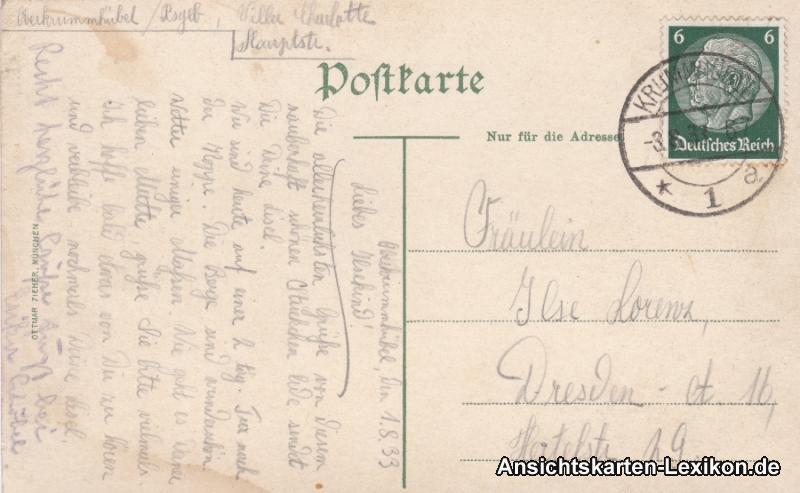 Oberkrummhübel / Rsgeb., Villa Charlotte
Hauptstr.
Postkarte
Nur für die Adresse
6 6
Deutsches Reich
KRUMMHÜBEL
-3.8.33
* 1 a
Fräulein
Ilse Lorenz,
Dresden - A. 16,
19
Oberkrummhübel, den 1.8.33
Liebes
Die allerherzlichsten Grüße von diesem
zauberhaft schönen Stückchen Erde sendet
Dir Deine Liesel.
Wir sind heute auf einer 2 täg. Tour nach
der Koppe. Die Berge sind wunderschön.
Wetter einiger Maßen. Wie geht es Deiner
lieben Mutter, grüße Sie bitte vielmals
Ich hoffe bald etwas von Dir zu hören
und verbleibe nochmals Deine Liesel.
Recht herzliche Grüße
OTTMAR ZIEHER, MÜNCHEN
Ansichtskarten-Lexikon.de